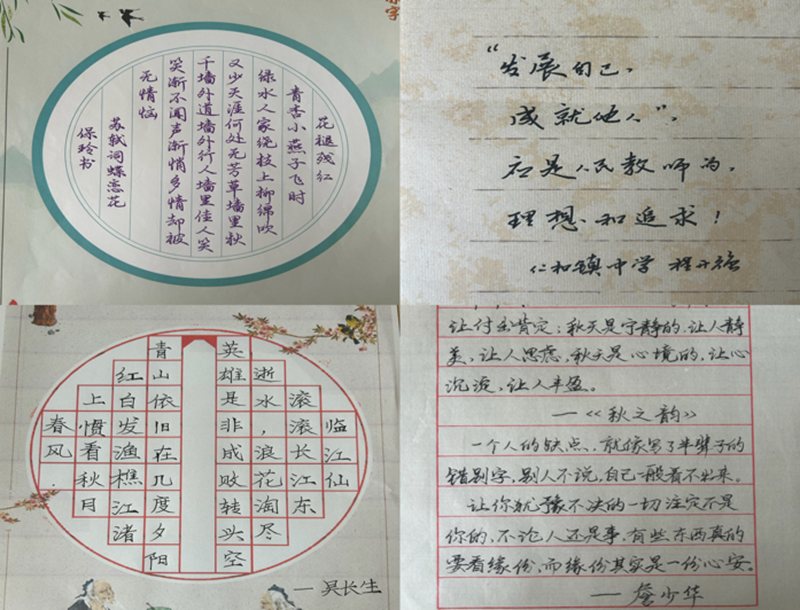 花褪残红
青杏小燕子飞时
绿水人家绕枝上柳绵吹
又少天涯何处无芳草墙里秋
千墙外道墙外行人墙里佳人笑
笑渐不闻声渐悄多情却被
无情恼
苏轼词蝶恋花
保玲书
“发展自己,
成就他人”,
应是人民教师的,
理想和追求!
仁和镇中学 程
临江仙
滚滚长江东
逝水,浪花淘尽
英雄是非成败转头空
青山依旧在几度夕阳
红白发渔樵江渚
上惯看秋月
春风.
—吴长生
让付出肯定:秋天是宁静的,让人静
美,让人思虑,秋天是心境的,让心
沉淀,让人丰盈。
—《秋之韵》
一个人的缺点,就像写了半辈子的
错别字,别人不说,自己一般看不出来。
让你犹豫不决的一切注定不是
你的,不论人还是事,有些东西真的
要看缘份,而缘份其实是一份心安。
——詹少华